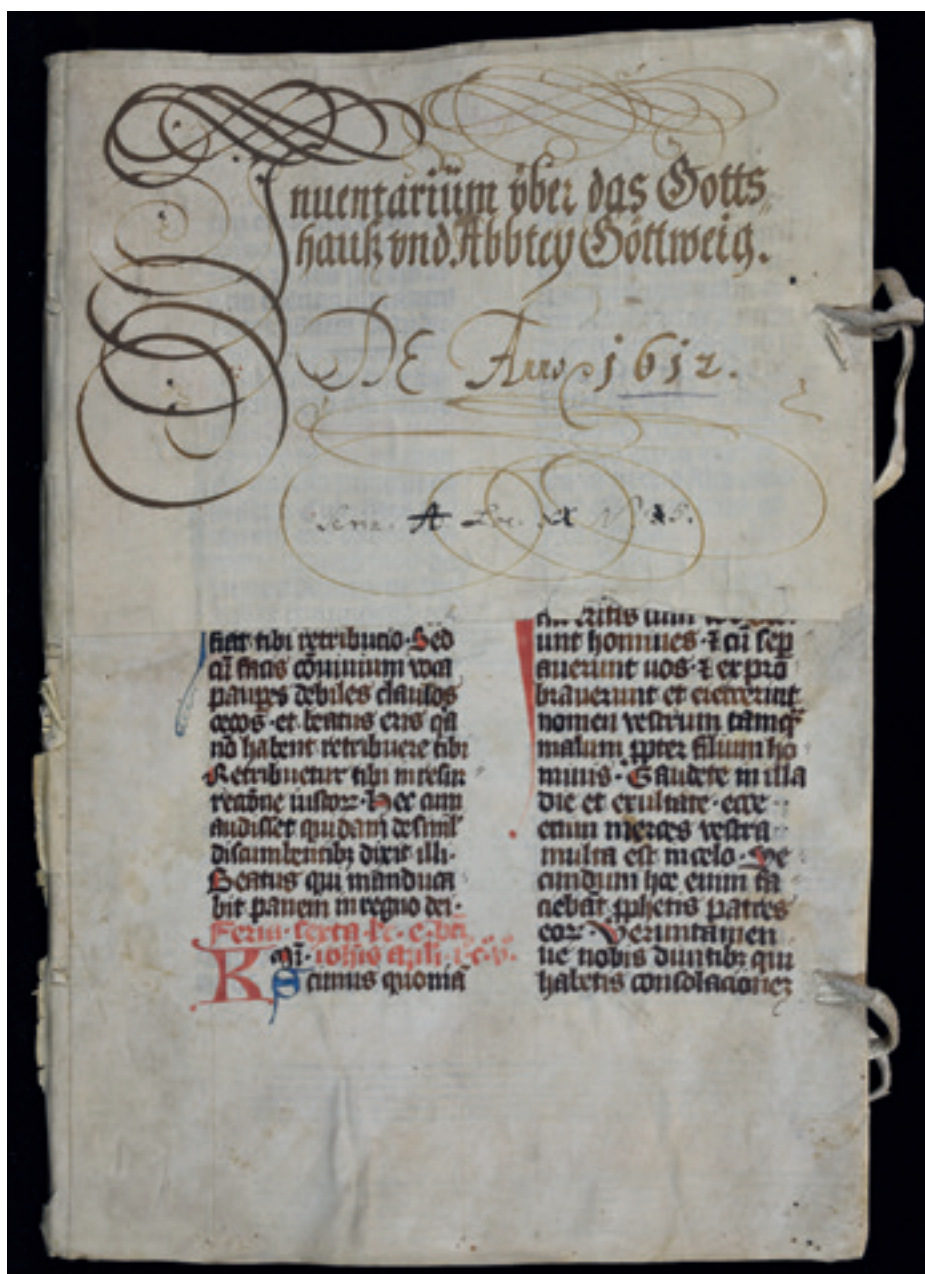 Inuentariüm vber das Gotts
hauß vnd Abbtey Göttweig.
DE Anno 1612.
A Loc. XX Nº 5.
fiat tibi retributio. Sed
cū facis cōuiuium voca
paupes debiles claudos
cecos. et beatus eris qa
nō habent retribuere tibi
Retribuetur tibi in resur
rectōne iustoꝝ. Hec cum
audisset quidam de simul
discumbentibꝫ dixit illi.
Beatus qui manduca
bit panem in regno dei.
Feria. sexta. lc. e. btī
ioh̄is apli. i. c. v.
Scimus quoniā
unt homines. ⁊ cū sep
auerunt uos. ⁊ expro
brauerunt et eiecerint
nomen vestrum tamqᷓ
malum ꝓpter filium ho
minis. Gaudete in illa
die et exultate. ecce
enim merces vestra
multa est in celo. Se
cundum hec enim fa
ciebāt ꝓphetis patres
eoꝝ. Veruntamen
ue uobis diuitibꝫ qui
habetis consolacionez